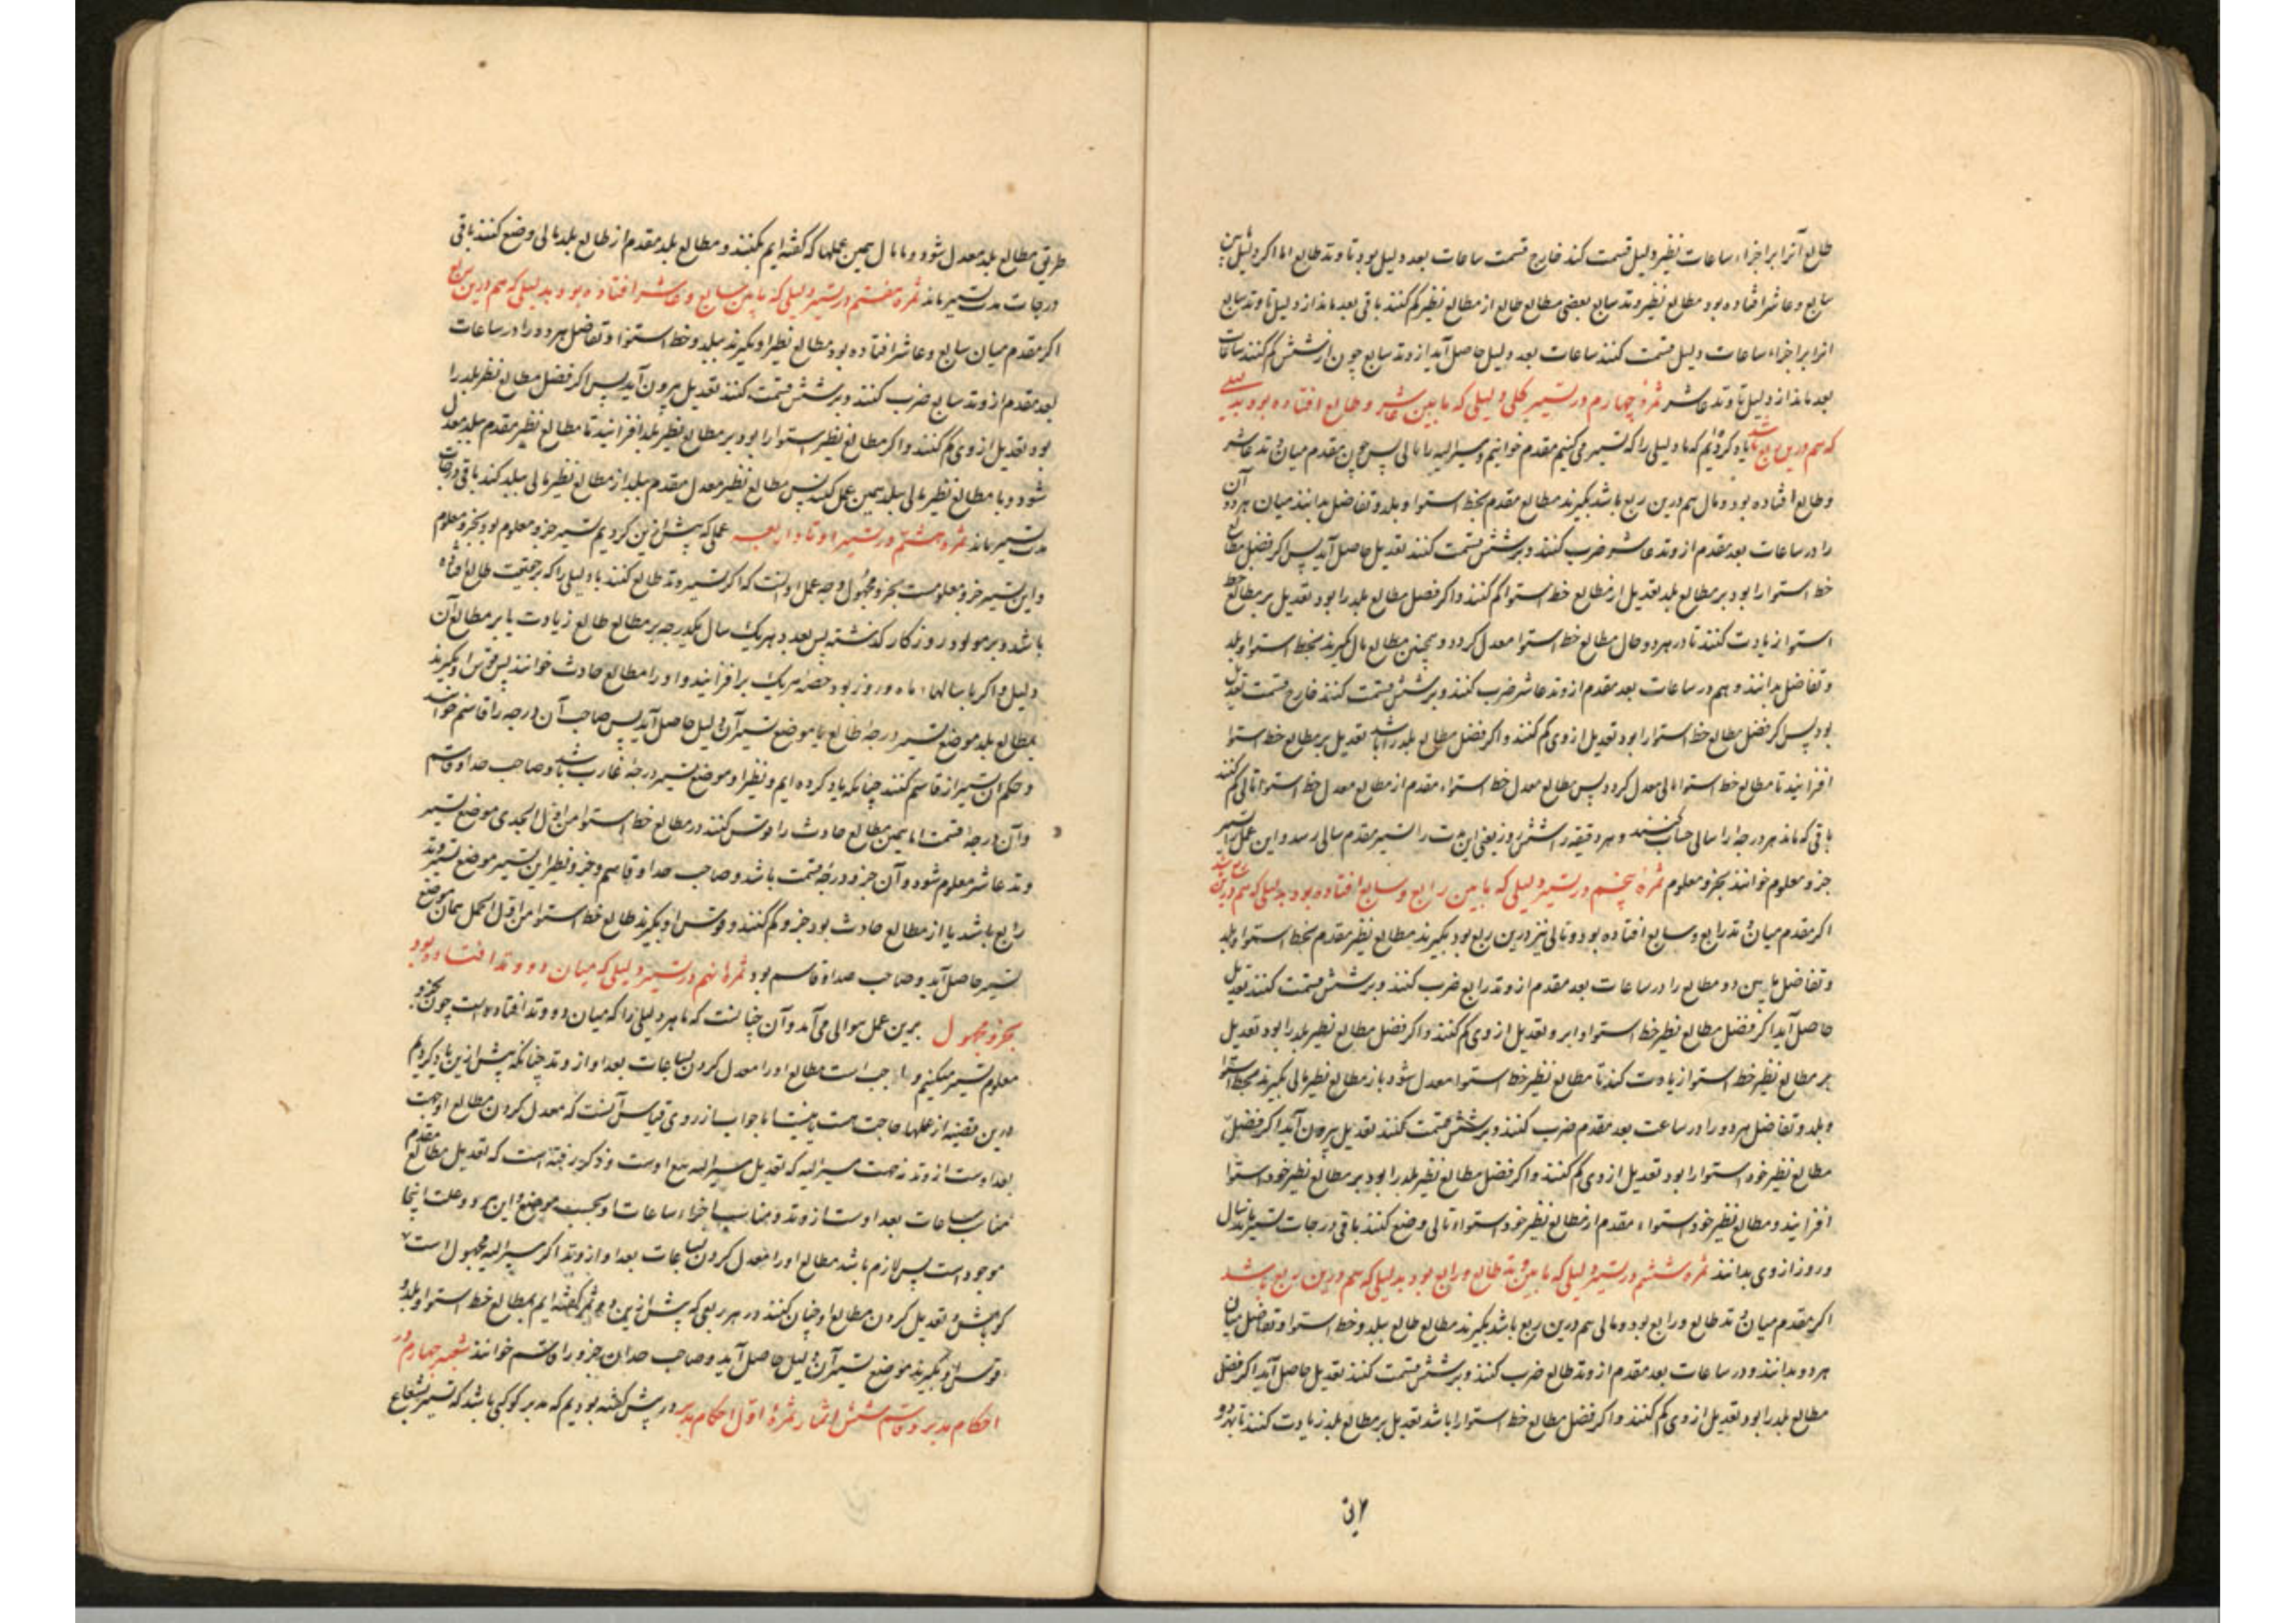 طالع آنرا بر اجزاء ساعات نظیر دلیل قسمت کند خارج قسمت ساعات بعد دلیل بود تا وتد طالع اما اکر دلیل مابین
سابع و عاشر افتاده بود مطالع نظیر وتد سابع یعنی مطالع طالع از مطالع نظیر کم کنند باقی بعد ماند از دلیل تا وتد سابع
انرا بر اجزاء ساعات دلیل قسمت کنند ساعات بعد دلیل حاصل آید از وتد سابع چون از شش کم کنند ساعات
بعد ماند از دلیل تا وتد عاشر ثمرهٔ چهارم در تسییر کلی دلیلی که مابین عاشر و طالع افتاده بود بدلیلی
که هم درین ربع باشد یاد کردیم که ما دلیلی را که تسییر می کنیم مقدم خوانیم و مسیر الیه را تالی پس چون مقدم میان وتد عاشر
و طالع افتاده بود و تالی هم درین ربع باشد بکیرند مطالع مقدم بخط استوا و بلد و تفاضل بدانند میان هر دو آن
را در ساعات بعد مقدم از وتد عاشر ضرب کنند و بر شش قسمت کنند تعدیل حاصل آید پس اکر فضل مطالع
خط استوا را بود بر مطالع بلد تعدیل از مطالع خط استوا کم کنند و اکر فضل مطالع بلد را بود تعدیل بر مطالع خط
استوا زیادت کنند تا در هر دو حال مطالع خط استوا معدل کردد و همچنین مطالع تالی کیرند بخط استوا و بلد
و تفاضل بدانند و هم در ساعات بعد مقدم از وتد عاشر ضرب کنند و بر شش قسمت کنند خارج قسمت تعدیل
بود پس اکر فضل مطالع خط استوا را بود تعدیل از وی کم کنند و اکر فضل مطالع بلد را باشد تعدیل بر مطالع خط استوا
افزایند تا مطالع خط استوا تالی معدل کردد پس مطالع معدل خط استواء مقدم از مطالع معدل خط استوا تالی کم کنند
باقی که ماند هر درجه را سالی حساب کنند و هر دقیقه را شش روز یعنی این مدت را تسییر مقدم بتالی رسد و این عمل را تسییر
جزو معلوم خوانند بجزو معلوم ثمرهٔ پنجم در تسییر دلیلی که مابین رابع و سابع افتاده بود بدلیلی که هم درین ربع باشد
اکر مقدم میان وتد رابع و سابع افتاده بود و تالی نیز درین ربع بود بکیرند مطالع نظیر مقدم بخط استوا و بلد
و تفاضل مابین دو مطالع را در ساعات بعد مقدم از وتد رابع ضرب کنند و بر شش قسمت کنند تعدیل
حاصل آید اکر فضل مطالع نظیر خط استوا را بود تعدیل از وی کم کنند و اکر فضل مطالع نظیر بلد را بود تعدیل
بر مطالع نظیر خط استوا زیادت کنند تا مطالع نظیر خط استوا معدل شود باز مطالع نظیر تالی بکیرند بخط استوا
و بلد و تفاضل هر دو را در ساعت بعد مقدم ضرب کنند و بر شش قسمت کنند تعدیل بیرون آید اکر فضل
مطالع نظیر خود استوا را بود تعدیل از وی کم کنند و اکر فضل مطالع نظیر بلد را بود بر مطالع نظیر خود استوا
افزایند و مطالع نظیر خود استواء مقدم از مطالع نظیر خود استواء تالی وضع کنند باقی درجات تسییر ماند سال
و روز از وی بدانند ثمره ششم در تسییر دلیلی که مابین وتد طالع و رابع بود بدلیلی که هم درین ربع باشد
اکر مقدم میان وتد طالع و رابع بود و تالی هم درین ربع باشد بکیرند مطالع طالع ببلد و خط استوا و تفاضل میان
هر دو بدانند و در ساعات بعد مقدم از وتد طالع ضرب کنند و بر شش قسمت کنند تعدیل حاصل آید اکر فضل
مطالع بلد را بود تعدیل از وی کم کنند و اکر فضل مطالع خط استوا را باشد تعدیل بر مطالع بلد زیادت کنند تا بهر دو
طریق مطالع بلد معدل شود و با تالی همین عملها که کفته ایم بکنند و مطالع بلد مقدم از مطالع بلد تالی وضع کنند باقی
درجات مدت تسییر ماند ثمره هفتم در تسییر دلیلی که مابین سابع و عاشر افتاده بود بدلیلی که هم درین ربع
اکر مقدم میان سابع و عاشر افتاده بود مطالع نظیر او بکیرند ببلد و خط استوا و تفاضل هر دو را در ساعات
بعد مقدم از وتد سابع ضرب کنند و بر شش قسمت کنند تعدیل بیرون آید پس اکر فضل مطالع نظیر بلد را
بود تعدیل از وی کم کنند و اکر مطالع نظیر استوا را بود بر مطالع نظیر بلد افزایند تا مطالع نظیر مقدم ببلد معدل
شود و با مطالع نظیر تالی ببلد همین عمل کنند پس مطالع نظیر معدل مقدم ببلد از مطالع نظیر تالی ببلد کند باقی درجات
مدت تسییر ماند ثمره هشتم در تسییر اوتاد اربعه عملی که پیش ازین کردیم تسییر جزو معلوم بود بجزو معلوم
و این تسییر جزو معلومست بجزو مجهول وجه عمل او آنست که اکر تسییر وتد طالع کنند یا دلیلی را که بر حقیقت طالع افتاده
باشد و بر مولود روزکار کذشته پس بعدد هر یک سال یکدرجه بر مطالع طالع زیادت یا بر مطالع آن
دلیل و اکر با سالها ماه و روز بود حصه هر یک برافزایند و او را مطالع حادث خوانند پس قوس او بکیرند
بمطالع بلد موضع تسییر درجهٔ طالع یا موضع تسییر آن دلیل حاصل آید پس صاحب آن درجه را قاسم خوانند
و حکم آن تسییر از قاسم کنند چنانکه یاد کرده ایم و نظیر او موضع تسییر درجهٔ غارب باشد و صاحب حد او قاسم
و آن درجه قسمت اما همین مطالع حادث را قوس کنند در مطالع خط استوا من اول الجدی موضع تسییر
وتد عاشر معلوم شود و آن جزو درجهٔ قسمت باشد و صاحب حد او قاسم و جزو نظیر این تسییر موضع تسییر وتد
رابع باشد یا از مطالع حادث بود جزو کم کنند و قوس او بکیرند طالع خط استوا من اول الحمل همان موضع
تسییر حاصل آید و صاحب حد او قاسم بود ثمرهٔ نهم در تسییر دلیلی که میان دو وتد افتاده بود
بجزو مجهول برین عمل سوالی می آید و آن چنانست که ما هر دلیلی را که میان دو وتد افتاده است چون بجزو
معلوم تسییر میکنیم واجب است مطالع او را معدل کردن بساعات بعد او از وتد چنانکه پیش ازین یاد کردیم
درین قضیه از عملها حاجت هست یا نیست اما جواب از روی قیاس آنست که معدل کردن مطالع او جهت
بعد اوست از وتد نه جهت مسیر الیه که تعدیل مسیر الیه تبع اوست و ذکر رفته است که تعدیل مطالع مقدم
مناسب ساعات بعد اوست از وتد و مناسب اجزاء ساعات او بحسب موضع و این هر دو علت اینجا
موجود است پس لازم باشد مطالع او را معدل کردن بساعات بعد او از وتد اکر مسیر الیه مجهول است
کو باش و تعدیل کردن مطالع او چنان کنند در هر ربعی که پیش ازین در ثمره کفته ایم بمطالع خط استوا و بلد و
قوس او بکیرند موضع تسییر آن دلیل حاصل آید و صاحب حد آن جزو را قاسم خوانند شعبه چهارم در
احکام مدبر و قاسم شش اثمار ثمرهٔ اول احکام مدبر در پیش کفته بودیم که مدبر کوکبی باشد که تسییر بشعاع